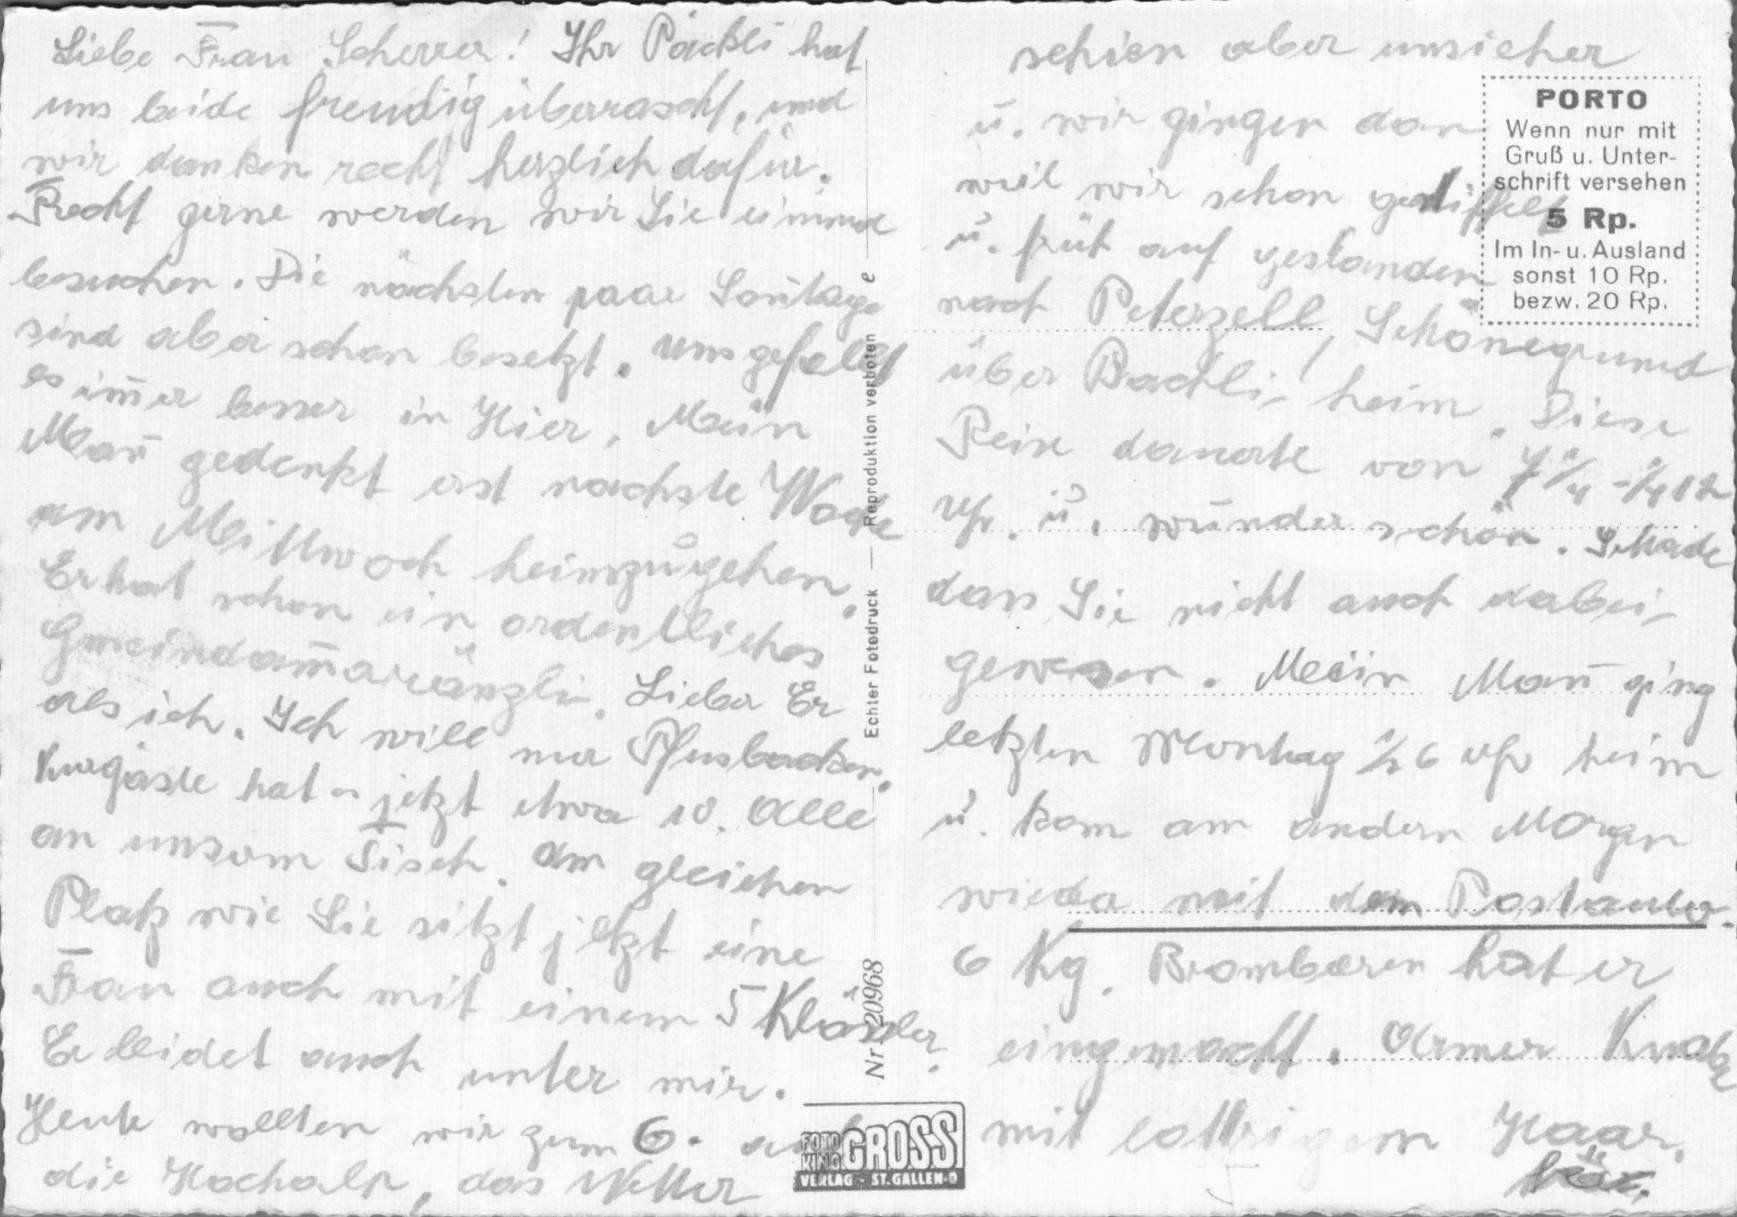 Liebe Frau Scherrer! Ihr Päckli hat
uns beide freudig überrascht, und
wir danken recht herzlich dafür.
Recht gerne werden wir Sie einmal
besuchen. Die nächsten paar Soñtage
sind aber schon besetzt. Uns gefällt
es im̃er besser in Hier. Mein
Mañ gedenkt erst nächste Woche
am Mittwoch heimzugehen.
Er hat schon ein ordentliches
Gmeindam̃aränzli. Lieber Er
als ich. Ich will nur Pfusbacken.
Kurgäste hat es jetzt etwa 10. Alle
an unserm Tisch. Am gleichen
Platz wie Sie sitzt jetzt eine
Frau auch mit einem 5 Klässler.
Er leidet auch unter mir.
Heute wollten wir zum 6. auf
die Hochalp, das Wetter
schien aber unsicher
u. wir gingen dan
weil wir schon gestiffelt
u. früh auf gestanden
nach Peterzell, Schönegrund
über Bächli- heim. Diese
Reise dauerte von 7 1/4 - 1/4 12
Uhr. u. wunderschön. Schade
dass Sie nicht auch dabei-
gewesen. Mein Mañ ging
letzten Montag 1/2 6 Uhr heim
u. kam am andern Morgen
wieder mit dem Postauto.
6 Kg. Brombeeren hat er
eingemacht. Armer Knabe
mit lottrigem Haar.
PORTO
Wenn nur mit
Gruß u. Unter-
schrift versehen
5 Rp.
Im In- u. Ausland
sonst 10 Rp.
bezw. 20 Rp.
Echter Fotodruck — Reproduktion verboten
Nr 20968
FOTO KINO GROSS
VERLAG - ST. GALLEN-O